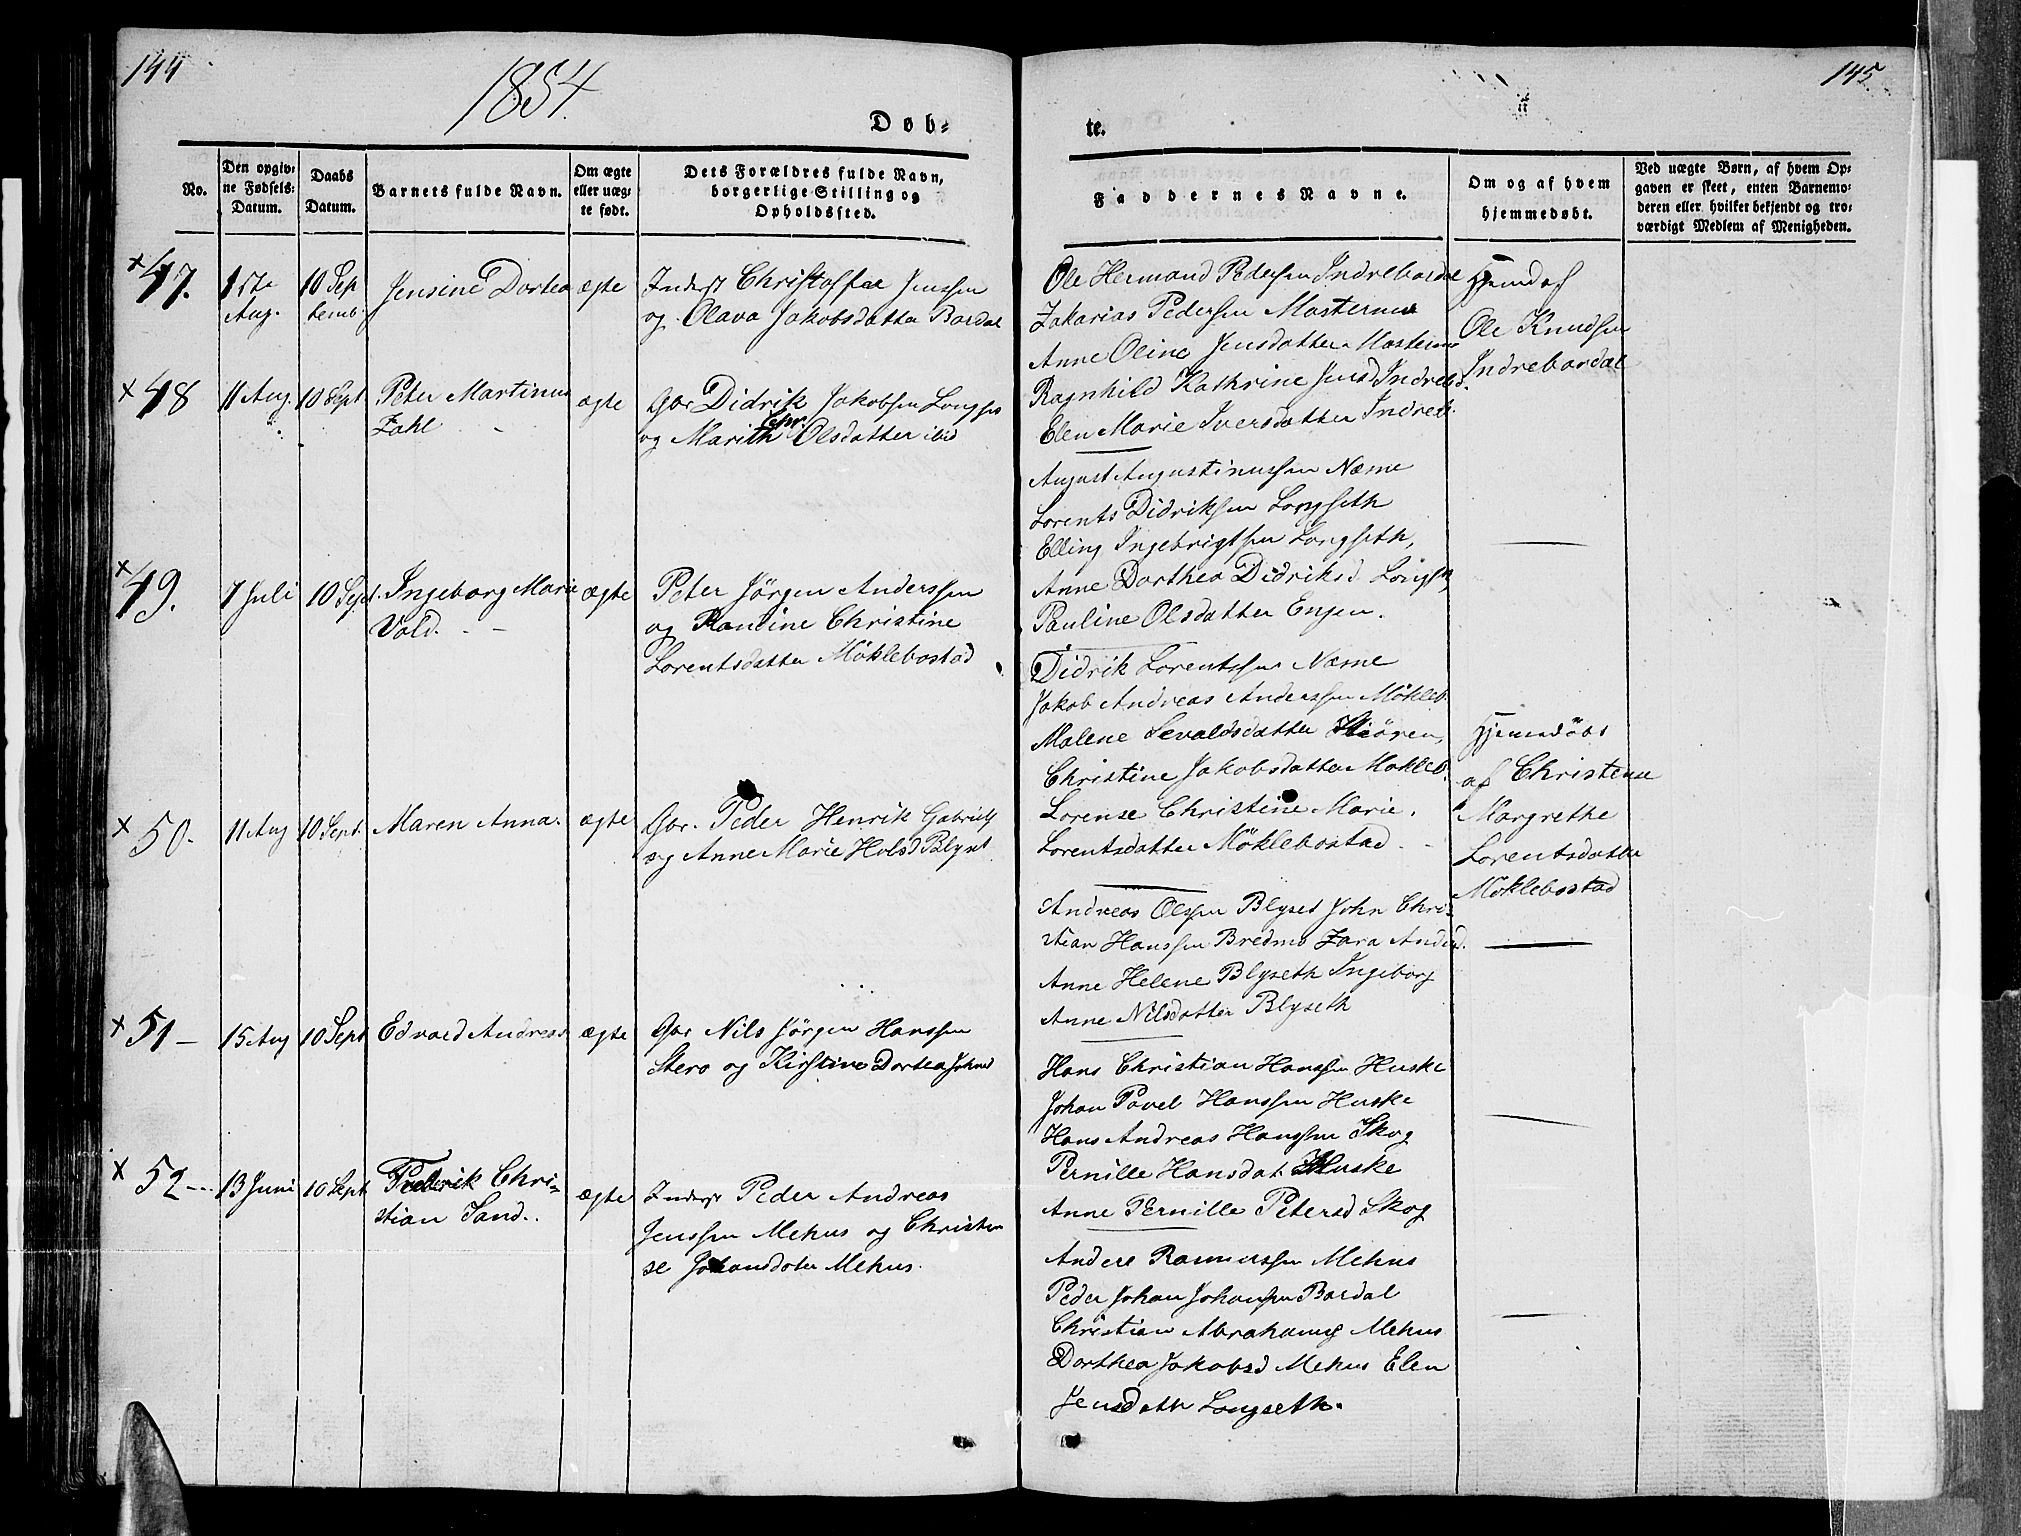 144
1854.
Døb-
No.
Den opgiv-
ne Fødsels-
Datum.
Daabs
Datum.
Barnets fulde Navn.
Om ægte
eller uæg-
te født.
Dets Forældres fulde Navn,
borgerlige Stilling og
Opholdssted.
47.
Aug.
10 Sep
temb.
Jensine Dortea
ægte
Inderst Christoffer Jenssen
og Olava Jakobsdatter Bardal
48
11 Aug.
10 Sept
Peter Martinus
Zahl
ægte
Gbr Didrik Jakobsen Longset
og Marith Chr. Olsdatter ibid
49.
7 Juli
10 Sept.
Ingeborg Marie
Vold.
ægte
Peter Jörgen Anderssen
og Pauline Christine
Lorentsdatter Möklebostad
50.
11 Aug
10 Sept.
Maren Anna.
ægte
Gbr. Peder Henrik Gabriels
og Anne Marie Holsd Blyset
51 -
15 Aug
10 Sept
Edvard Andreas
ægte
Gbr Nils Jörgen Hanssen
Stero og Kirstine Dortea Johnsd
52
13 Juni
10 Sept
Frederik Chri-
stian Sand.
ægte
Inderst Peder Andreas
Jenssen Mehus og Christen
se Johansdater Mehus.
145
te.
Faddernes Navne.
Om og af hvem
hjemmedøbt.
Ved uægte Børn, af hvem Op-
gaven er skeet, enten Barnemo-
deren eller hvilket bekjendt og tro-
værdigt Medlem af Menigheden.
Ole Hermand Pedersen Indrebardal
Zakarias Pedersen Masternes
Anne Oline Jensdatter Masternes
Ragnhild Kathrine Jensd Indrebd.
Elen Marie Iversdatter Indreb.
Hjemd af
Ole Knudsen
Indrebardal
August Augustinussen Næsne
Lorents Didriksen Longseth
Elling Ingebrigtsen Longseth,
Anne Dorthea Didriksd Longset,
Pauline Olsdatter Engen.
Didrik Lorentssen Næsne
Jakob Andreas Anderssen Mökleb.
Malene Sevaldsdatter
Christine Jakobsdatter Mökleb.
Lorense Christine Marie.
Lorentsdatter Möklebostad.
Hjemdöbt
af Christense
Margrethe
Lorentsdatter
Möklebostad
Andreas Olssen Blyset John Chri-
stian Hanssen Bredmo Zara Andersd.
Anne Helene Blyseth Ingeborg
Anne Nilsdatter Blyseth
Hans Christian Hanssen Huske
Johan Pavel Hanssen Huske
Hans Andreas Hanssen Skog
Pernille Hansdat Huske
Anne Pernille Petersd Skog
Andere Rasmussen Mehus
Peder Johan Johansen Bardal
Christian Abrahams Mehus
Dorthea Jakobsd Mehus Elen
Jensdattr Longseth.